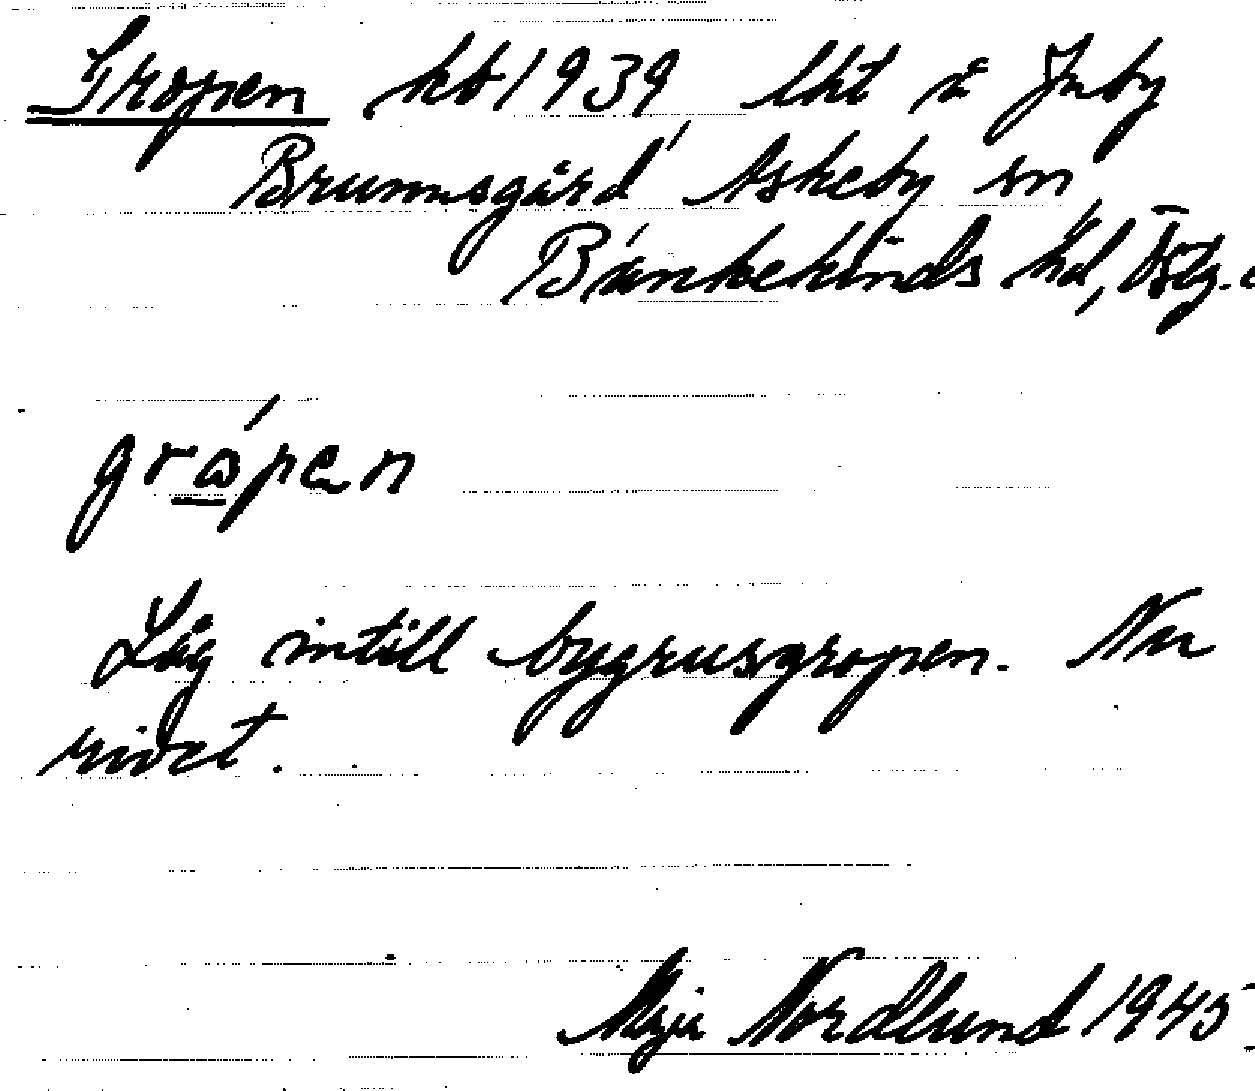 Gropen kb 1939, lht å Juby
Brunnsgård Askeby sn
Bankekinds hd, Östg.
gròpen
Låg intill bygrusgropen. Nu
rivet.
Maja Nordlund 1945